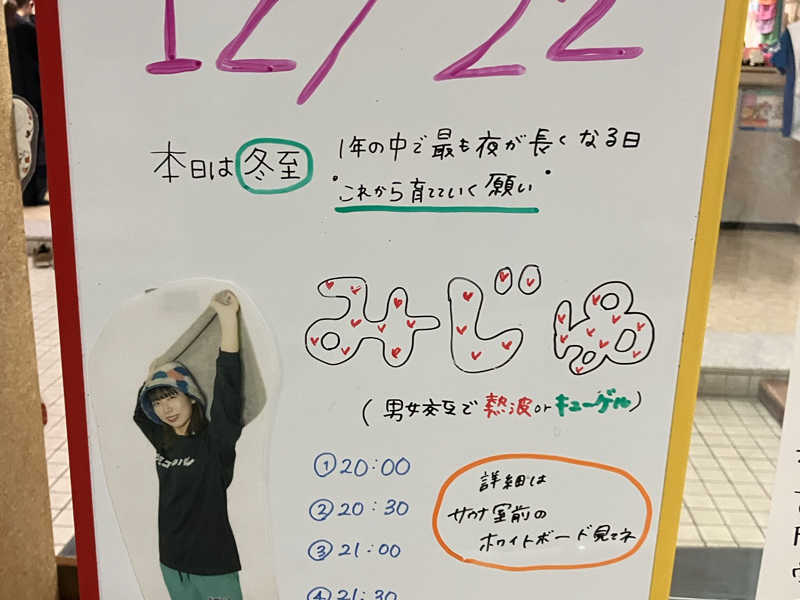 12/22
本日は 冬至
1年の中で最も夜が長くなる日
"これから育てていく願い"
みじゅ
(男女交互で熱波orキューゲル)
①20:00
②20:30
③21:00
④21:30
詳細は
サウナ室前の
ホワイトボード見てネ